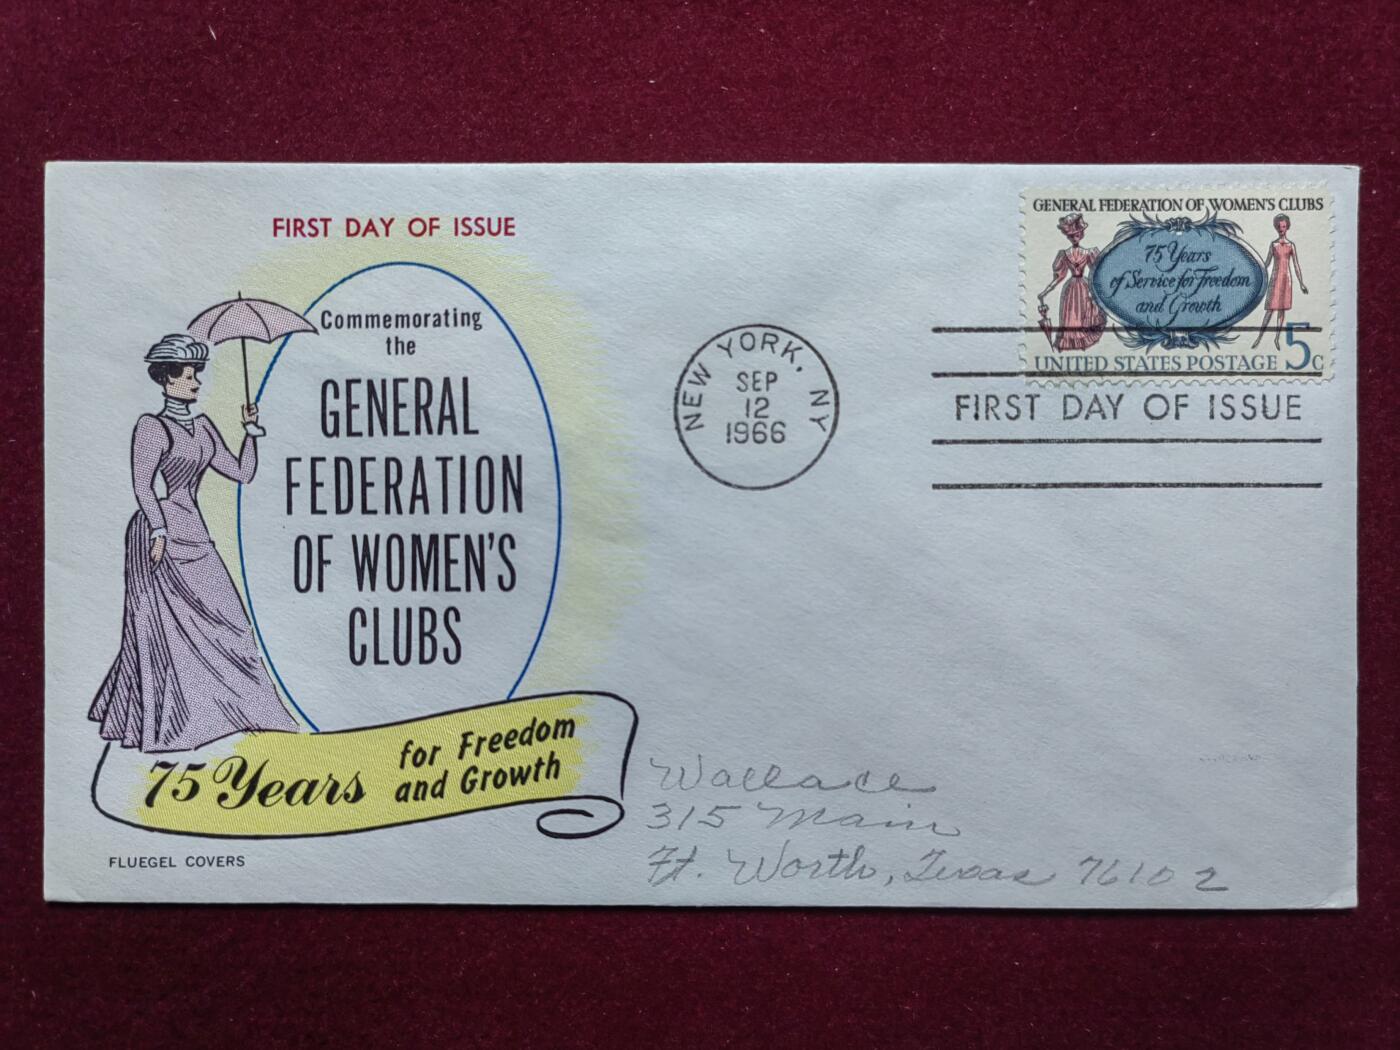 FIRST DAY OF ISSUE
Commemorating
the
GENERAL
FEDERATION
OF WOMEN'S
CLUBS
75 Years for Freedom
and Growth
FLUEGEL COVERS
NEW YORK, NY
SEP
12
1966
GENERAL FEDERATION OF WOMEN'S CLUBS
75 Years
of Service for Freedom
and Growth
UNITED STATES POSTAGE 5c
FIRST DAY OF ISSUE
Wallace
315 Main
Ft. Worth, Texas 76102